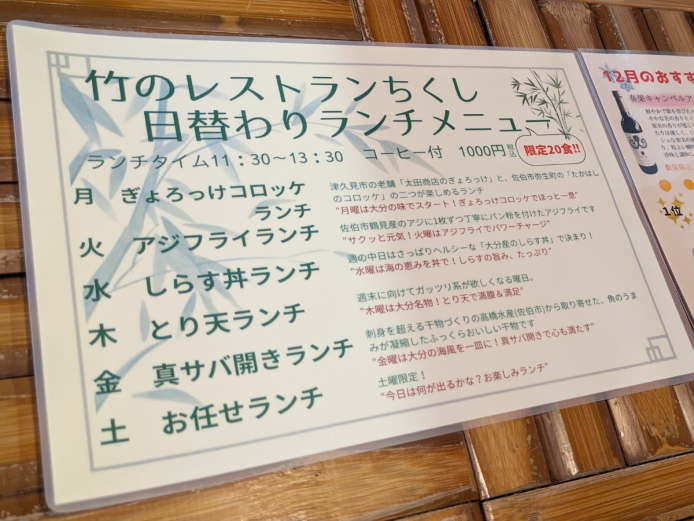 竹のレストランちくし
日替わりランチメニュー
ランチタイム11：30～13：30　コーヒー付　1000円税込
限定20食!!
月　ぎょろっけコロッケ
ランチ
津久見市の老舗「太田商店のぎょろっけ」と、佐伯市弥生町の「たかはし
のコロッケ」の二つが楽しめるランチ
"月曜は大分の味でスタート！ぎょろっけコロッケでほっと一息"
火　アジフライランチ
佐伯市鶴見産のアジに1枚ずつ丁寧にパン粉を付けたアジフライです
"サクッと元気！火曜はアジフライでパワーチャージ"
水　しらす丼ランチ
週の中日はさっぱりヘルシーな「大分産のしらす丼」で決まり！
"水曜は海の恵みを丼で！しらすの旨み、たっぷり"
木　とり天ランチ
週末に向けてガッツリ系が欲しくなる曜日。
"木曜は大分名物！とり天で満腹＆満足"
金　真サバ開きランチ
刺身を超える干物づくりの高橋水産(佐伯市)から取り寄せた、魚のうま
みが凝縮したふっくらおいしい干物です
"金曜は大分の海風を一皿に！真サバ開きで心も満たす"
土　お任せランチ
土曜限定！
"今日は何が出るかな？お楽しみランチ"
12月のおすす
安葉キャンベルア
1位